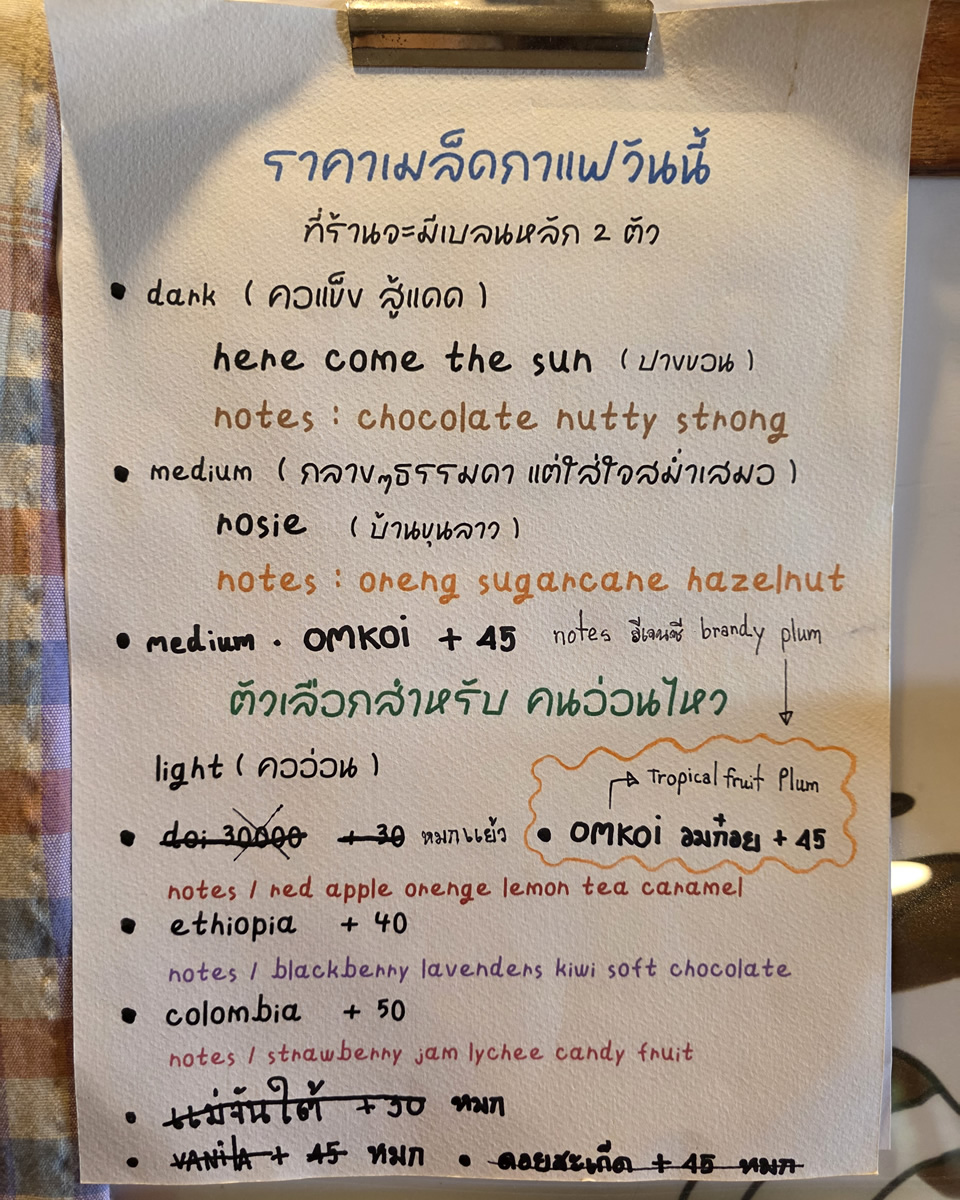 ราคาเมล็ดกาแฟวันนี้
ที่ร้านจะมีเบลนหลัก 2 ตัว
• dark ( คอแข็ง สู้แดด )
here come the sun ( ปางขอน )
notes : chocolate nutty strong
• medium ( กลางๆธรรมดา แต่ใส่ใจสม่ำเสมอ )
rosie ( บ้านขุนลาว )
notes : oreng sugarcane hazelnut
• medium . OMKOi + 45 notes brandy plum
ตัวเลือกสำหรับ คนอ่อนไหว
light ( คออ่อน )
Tropical fruit Plum
• doi 30000 + 30 หมกแย้ว
• OMKOi อมก๋อย + 45
notes / red apple orenge lemon tea caramel
• ethiopia + 40
notes / blackberry lavenders kiwi soft chocolate
• colombia + 50
notes / strawberry jam lychee candy fruit
• แม่จันใต้ + 30 หมก
• VANilA + 45 หมก • ดอยสะเก็ด + 45 หมก